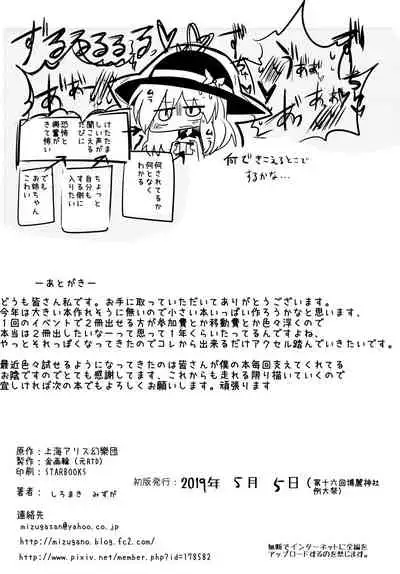 ずるるるるるっ
あ゛ぁっ
けたたま
しい声が
聞こえる
たびに
恐怖と
興奮が
きて怖い
何されてるか
何となく
わかる
ちょっと
自分も
する側に
入りたい
でも
お姉ちゃん
こわい
何できこえるとこで
するかな…
ーあとがきー
どうも皆さん私です。お手に取っていただいてありがとうございます。
今年は大きい本作れそうに無いので小さい本いっぱい作ろうかなと思います、
1回のイベントで2冊出せる方が参加費とか移動費とか色々浮くので
本当は2冊出したいなーって思って1年くらいたってるんですよね、
やっとそれっぽくなってきたのでコレから出来るだけアクセル踏んでいきたいです。
最近色々試せるようになってきたのは皆さんが僕の本毎回支えてくれてる
お陰ですのでとても感謝してます、これからも走れる限り描いていくので
宜しければ次の本でもよろしくお願いします。頑張ります
原作：上海アリス幻樂団
製作：金画輪（元RTD）
印刷：STARBOOKS
著者： しろまき みずが
初版発行：2019年 5月 5日（第十六回博麗神社
例大祭）
連絡先
mizugasan@yahoo.co.jp
http://mizugano.blog.fc2.com/
http://www.pixiv.net/member.php?id=178582
無断でインターネットに全編を
アップロードするのを禁じます。